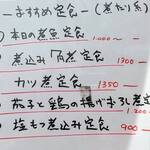 ーおすすめ定食ー(煮たり系)
○本日の煮魚定食 1.000〜
煮込み角煮定食 1300ー
カツ煮定食 1350ー
茄子と鶏の揚げおろし煮定 1200ー
塩もつ煮込み定食 900ー